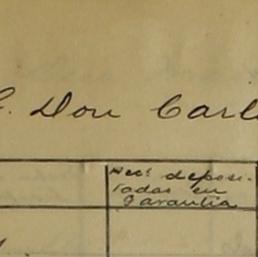 Don Carl
Acc.s deposi-
tadas en
Garantia